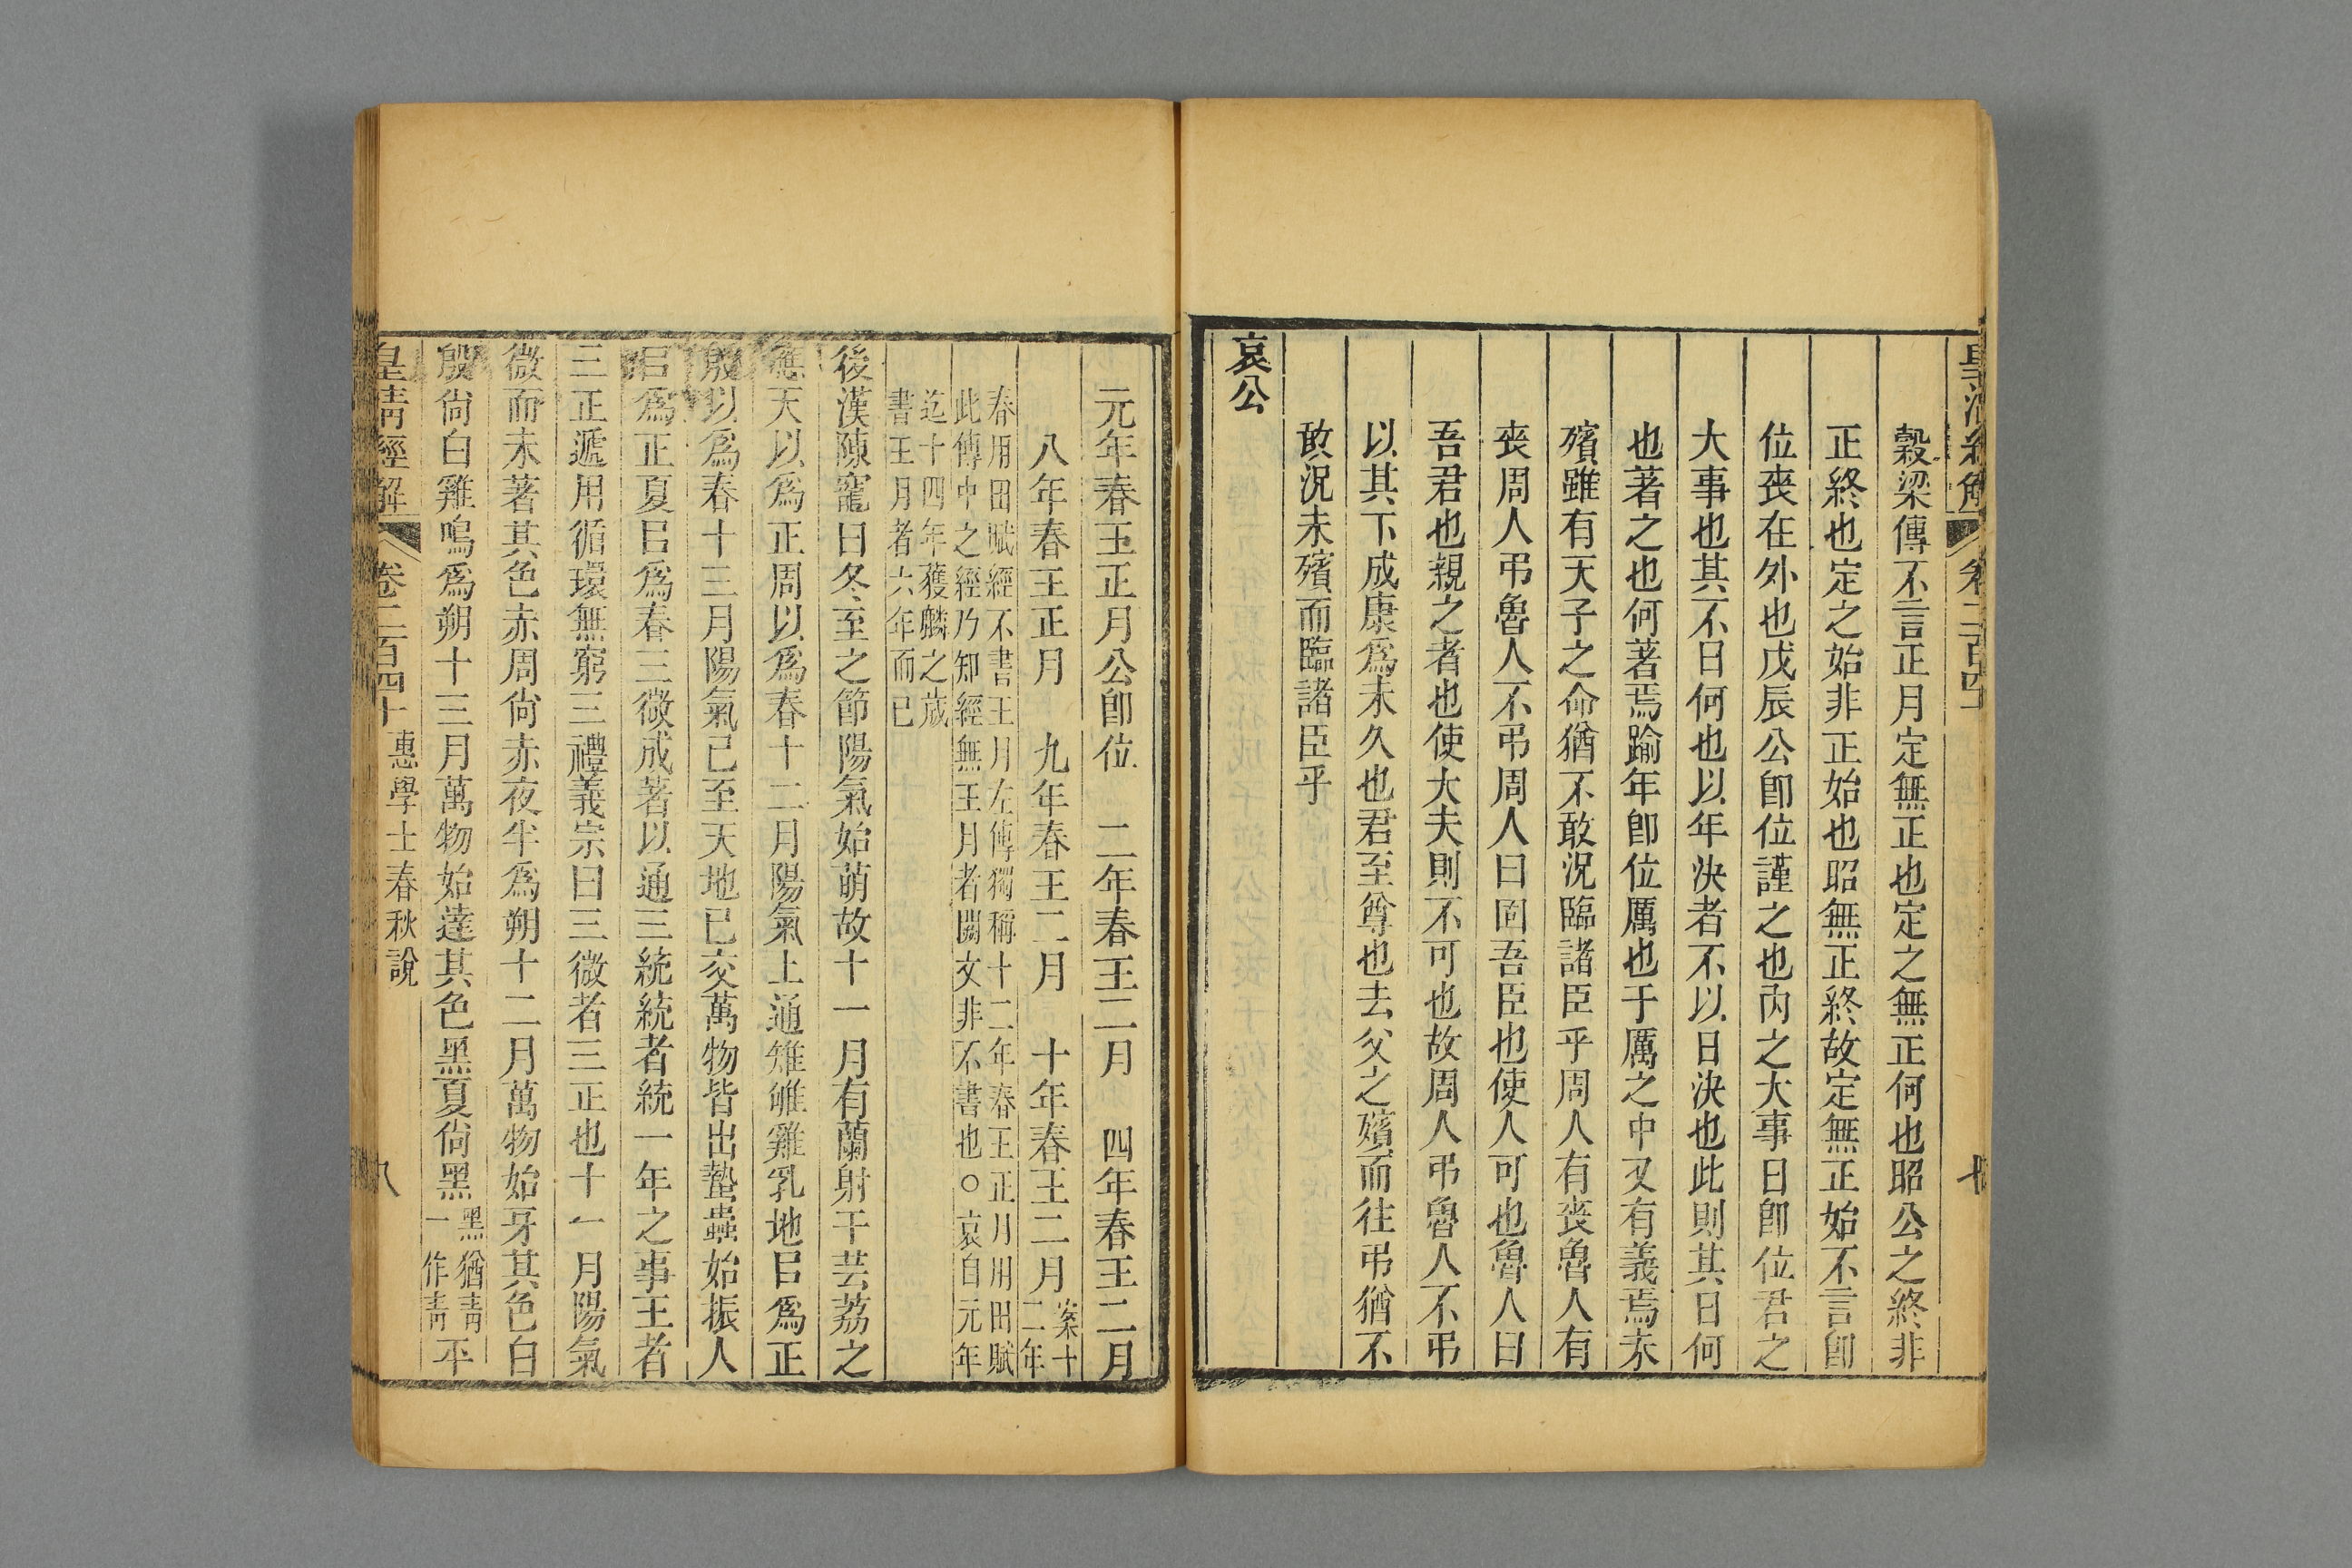 皇清經解 卷二百四十 七
穀梁傳不言正月定無正也定之無正何也昭公之終非
正終也定之始非正始也昭無正終故定無正始不言卽
位喪在外也戊辰公卽位謹之也內之大事日卽位君之
大事也其不日何也以年決者不以日決也此則其日何
也著之也何著焉踰年卽位厲也于厲之中又有義焉未
殯雖有天子之命猶不敢況臨諸臣乎周人有喪魯人有
喪周人弔魯人不弔周人曰固吾臣也使人可也魯人曰
吾君也親之者也使大夫則不可也故周人弔魯人不弔
以其下成康爲未久也君至尊也去父之殯而往弔猶不
敢況未殯而臨諸臣乎
哀公
元年春王正月公卽位 二年春王二月 四年春王二月
八年春王正月 九年春王二月 十年春王二月案十二年
春用田賦經不書王月左傳獨稱十二年春王正月用田賦
此傳中之經乃知經無王月者闕文非不書也○哀自元年
迄十四年獲麟之歲
書王月者六年而已
後漢陳寵曰冬至之節陽氣始萌故十一月有蘭射干芸荔之
應天以爲正周以爲春十二月陽氣上通雉雊雞乳地㠯爲正
殷以爲春十三月陽氣已至天地已交萬物皆出蟄蟲始振人
㠯爲正夏㠯爲春三微成著以通三統統者統一年之事王者
三正遞用循環無窮三禮義宗曰三微者三正也十一月陽氣
微而未著其色赤周尙赤夜半爲朔十二月萬物始牙其色白
殷尙白雞鳴爲朔十三月萬物始達其色黑夏尙黑黑猶靑一作靑平
皇清經解 卷二百四十 惠學士春秋說 八